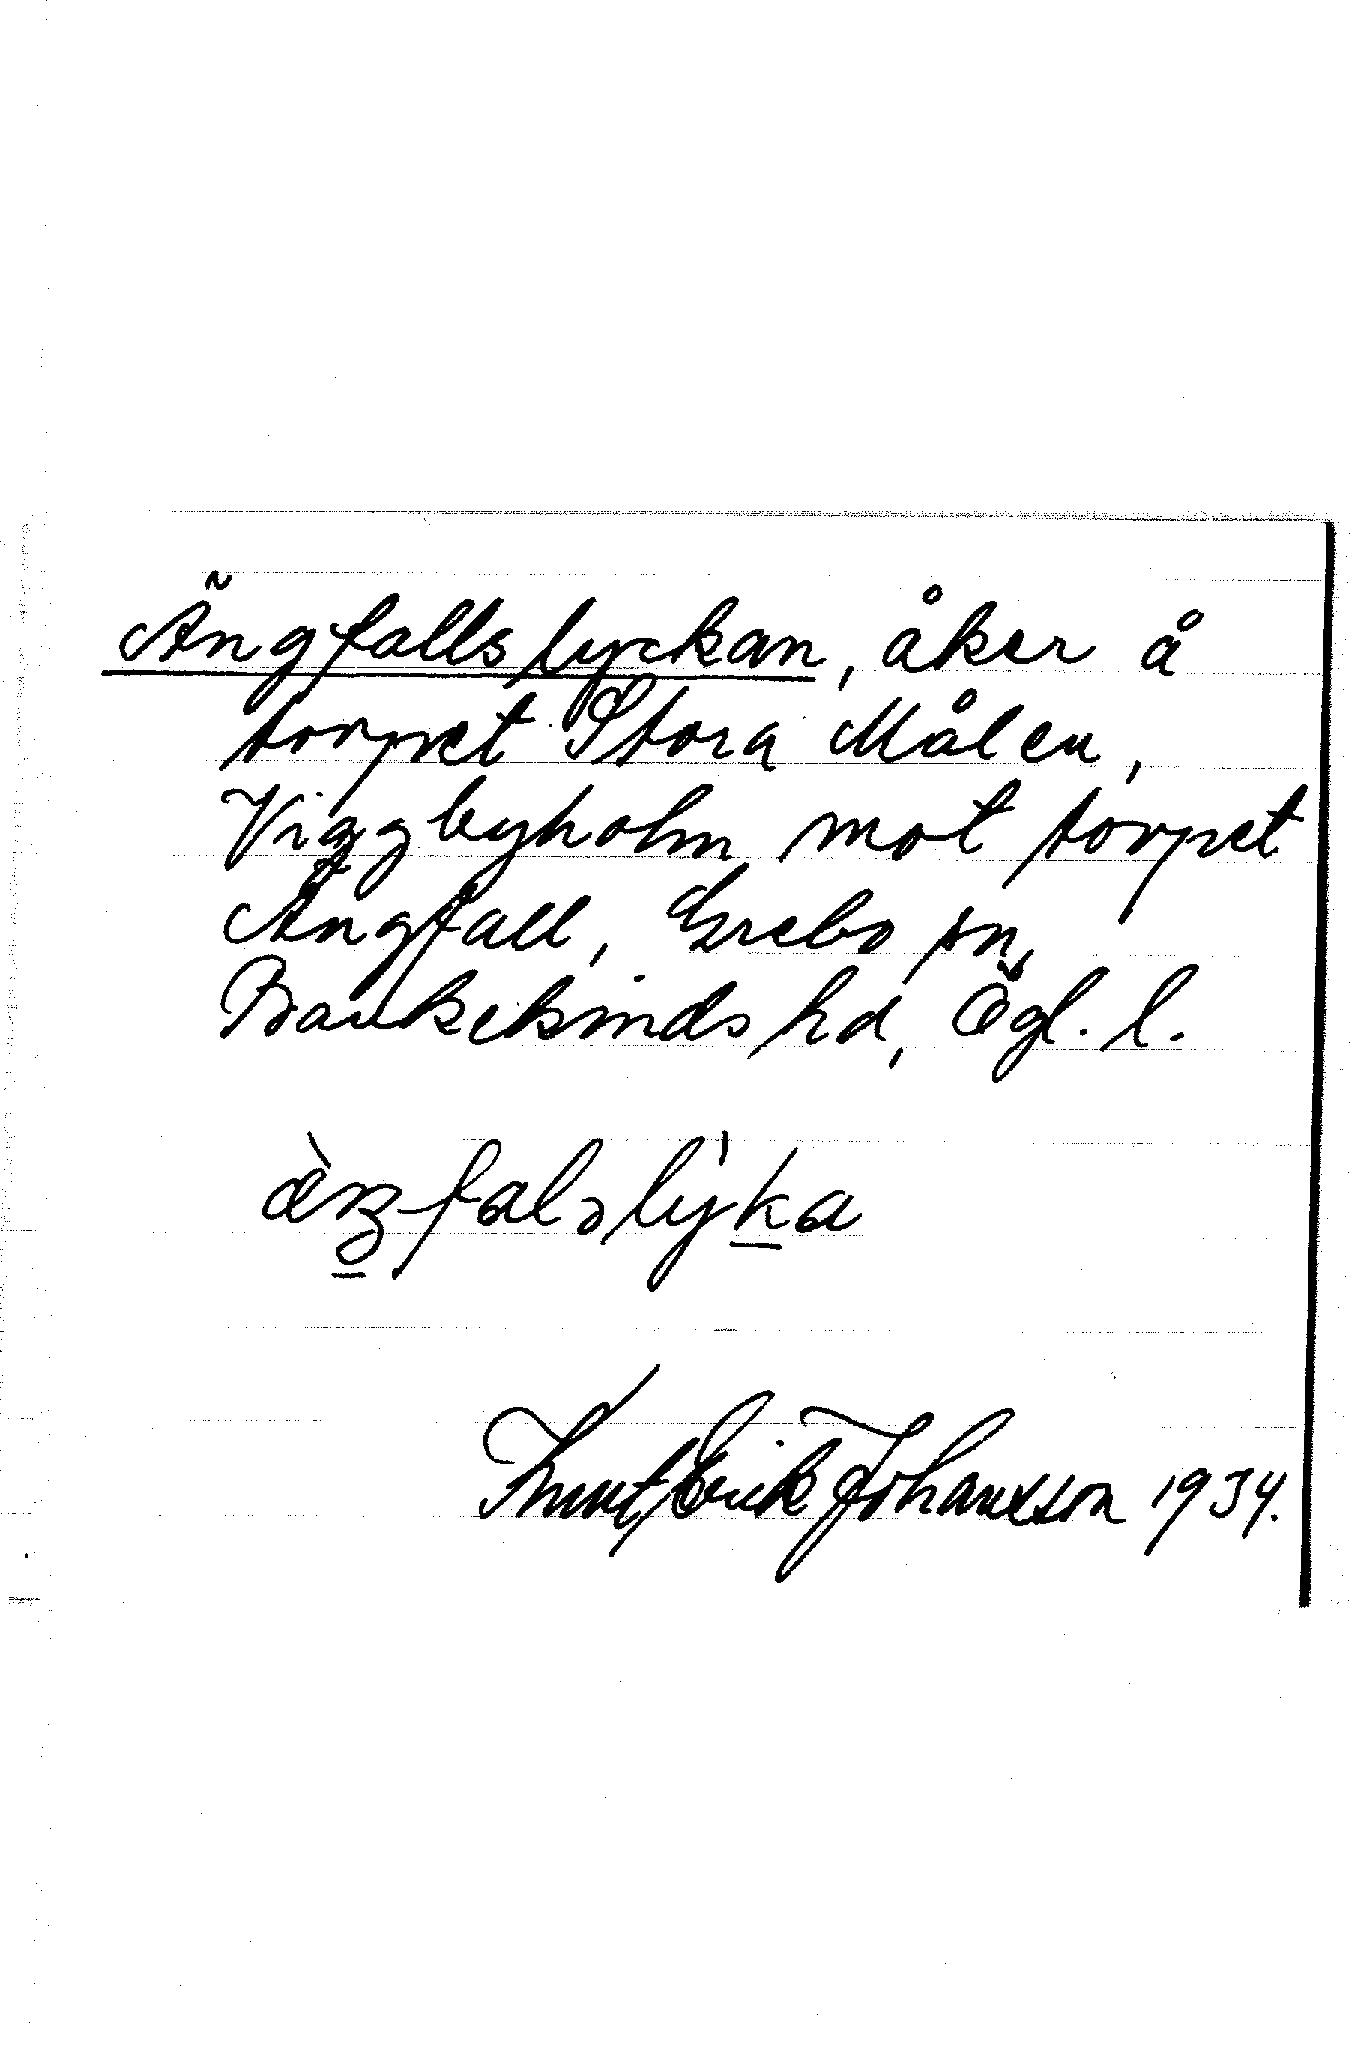 Ängfallslyckan, åker å
torpet Stora Målen,
Viggbyholm mot torpet
Ängfall, Grebo sn,
Bankekinds hd, Ögl. l.
Knut Erik Johansson 1934.